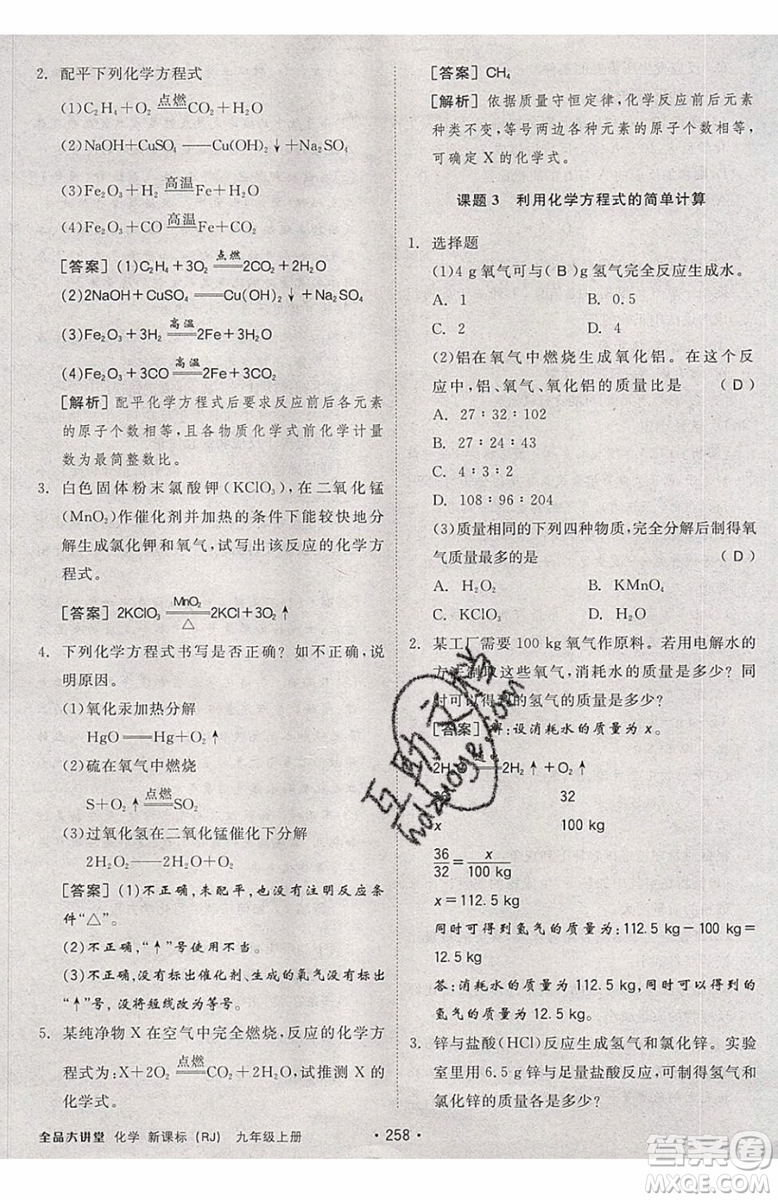 2. 配平下列化学方程式
(1)C₂H₄+O₂ 点燃 CO₂+H₂O
(2)NaOH+CuSO₄——Cu(OH)₂+Na₂SO₄
(3)Fe₂O₃+H₂ 高温 Fe+H₂O
(4)Fe₂O₃+CO 高温 Fe+CO₂
[答案] (1)C₂H₄+3O₂ 点燃 2CO₂+2H₂O
(2)2NaOH+CuSO₄══Cu(OH)₂↓+Na₂SO₄
(3)Fe₂O₃+3H₂ 高温 2Fe+3H₂O
(4)Fe₂O₃+3CO 高温 2Fe+3CO₂
[解析] 配平化学方程式后要求反应前后各元素
的原子个数相等，且各物质化学式前化学计量
数为最简整数比。
3. 白色固体粉末氯酸钾(KClO₃)，在二氧化锰
(MnO₂)作催化剂并加热的条件下能较快地分
解生成氯化钾和氧气，试写出该反应的化学方
程式。
[答案] 2KClO₃ MnO₂ △ 2KCl+3O₂↑
4. 下列化学方程式书写是否正确？如不正确，说
明原因。
(1)氧化汞加热分解
HgO——Hg+O₂↑
(2)硫在氧气中燃烧
S+O₂ 点燃 SO₂↑
(3)过氧化氢在二氧化锰催化下分解
2H₂O₂——2H₂O+O₂
[答案] (1)不正确，未配平，也没有注明反应条
件“△”。
(2)不正确，“↑”号使用不当。
(3)不正确，没有标出催化剂、生成的氧气没有标
出“↑”号，没有将短线改为等号。
5. 某纯净物 X 在空气中完全燃烧，反应的化学方
程式为：X+2O₂ 点燃 CO₂+2H₂O，试推测 X 的
化学式。
[答案] CH₄
[解析] 依据质量守恒定律，化学反应前后元素
种类不变，等号两边各种元素的原子个数相等，
可确定 X 的化学式。
课题 3 利用化学方程式的简单计算
1. 选择题
(1)4 g 氧气可与( B )g 氢气完全反应生成水。
A. 1 B. 0.5
C. 2 D. 4
(2)铝在氧气中燃烧生成氧化铝。在这个反
应中，铝、氧气、氧化铝的质量比是 ( D )
A. 27∶32∶102
B. 27∶24∶43
C. 4∶3∶2
D. 108∶96∶204
(3)质量相同的下列四种物质，完全分解后制得氧
气质量最多的是 ( D )
A. H₂O₂ B. KMnO₄
C. KClO₃ D. H₂O
2. 某工厂需要 100 kg 氧气作原料。若用电解水的
方法制取这些氧气，消耗水的质量是多少？同
时可以得到的氢气的质量是多少？
[答案] 解：设消耗水的质量为 x。
2H₂O 通电 2H₂↑+O₂↑
36 32
x 100 kg
36/32=x/100 kg
x=112.5 kg
同时可得到氢气的质量为：112.5 kg−100 kg=
12.5 kg
答：消耗水的质量为 112.5 kg，同时可以得到的
氢气的质量为 12.5 kg。
3. 锌与盐酸(HCl)反应生成氢气和氯化锌。实验
室里用 6.5 g 锌与足量盐酸反应，可制得氢气和
氯化锌的质量各是多少？
全品大讲堂 化学 新课标(RJ) 九年级上册 ·258·
互助文档
hdzuoye.com
答案圈
MXQE.COM